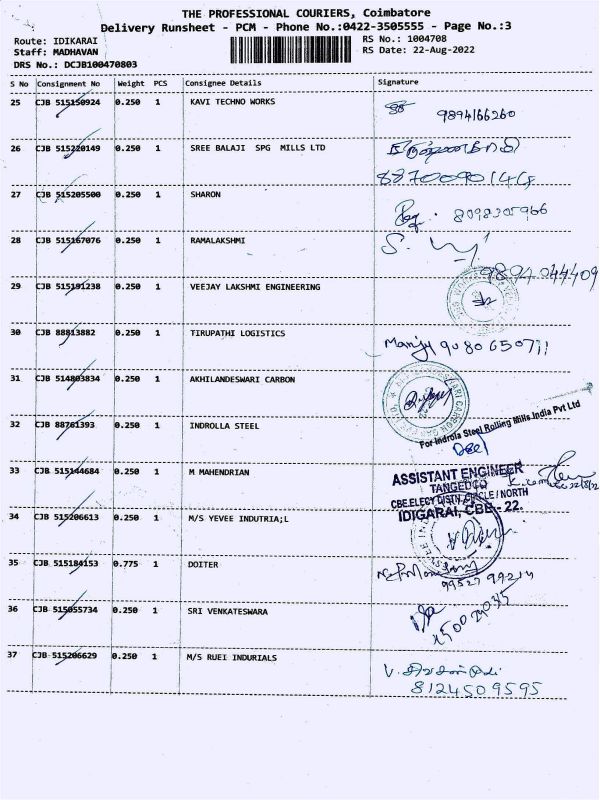 THE PROFESSIONAL COURIERS, Coimbatore
Delivery Runsheet - PCM - Phone No.:0422-3505555 - Page No.:3
Route: IDIKARAI RS No.: 1004708
Staff: MADHAVAN RS Date: 22-Aug-2022
DRS No.: DCJB100470803
S No Consignment No Weight PCS Consignee Details Signature
25 CJB 515150924 0.250 1 KAVI TECHNO WORKS
9894166260
26 CJB 515220149 0.250 1 SREE BALAJI SPG MILLS LTD
27 CJB 515205500 0.250 1 SHARON
8098305966
28 CJB 515167076 0.250 1 RAMALAKSHMI
9894044409
29 CJB 515191238 0.250 1 VEEJAY LAKSHMI ENGINEERING
30 CJB 88813882 0.250 1 TIRUPATHI LOGISTICS
Manju
31 CJB 514803834 0.250 1 AKHILANDESWARI CARBON
32 CJB 88761393 0.250 1 INDROLLA STEEL
For Indrola Steel Rolling Mills India Pvt Ltd
33 CJB 515144684 0.250 1 M MAHENDRIAN
ASSISTANT ENGINEER
TANGEDCO
CBE.ELECY DISTN. CIRCLE / NORTH
IDIGARAI, CBE - 22.
34 CJB 515206613 0.250 1 M/S YEVEE INDUTRIA;L
35 CJB 515184153 0.775 1 DOITER
36 CJB 515055734 0.250 1 SRI VENKATESWARA
37 CJB 515206629 0.250 1 M/S RUEI INDURIALS
8124509595